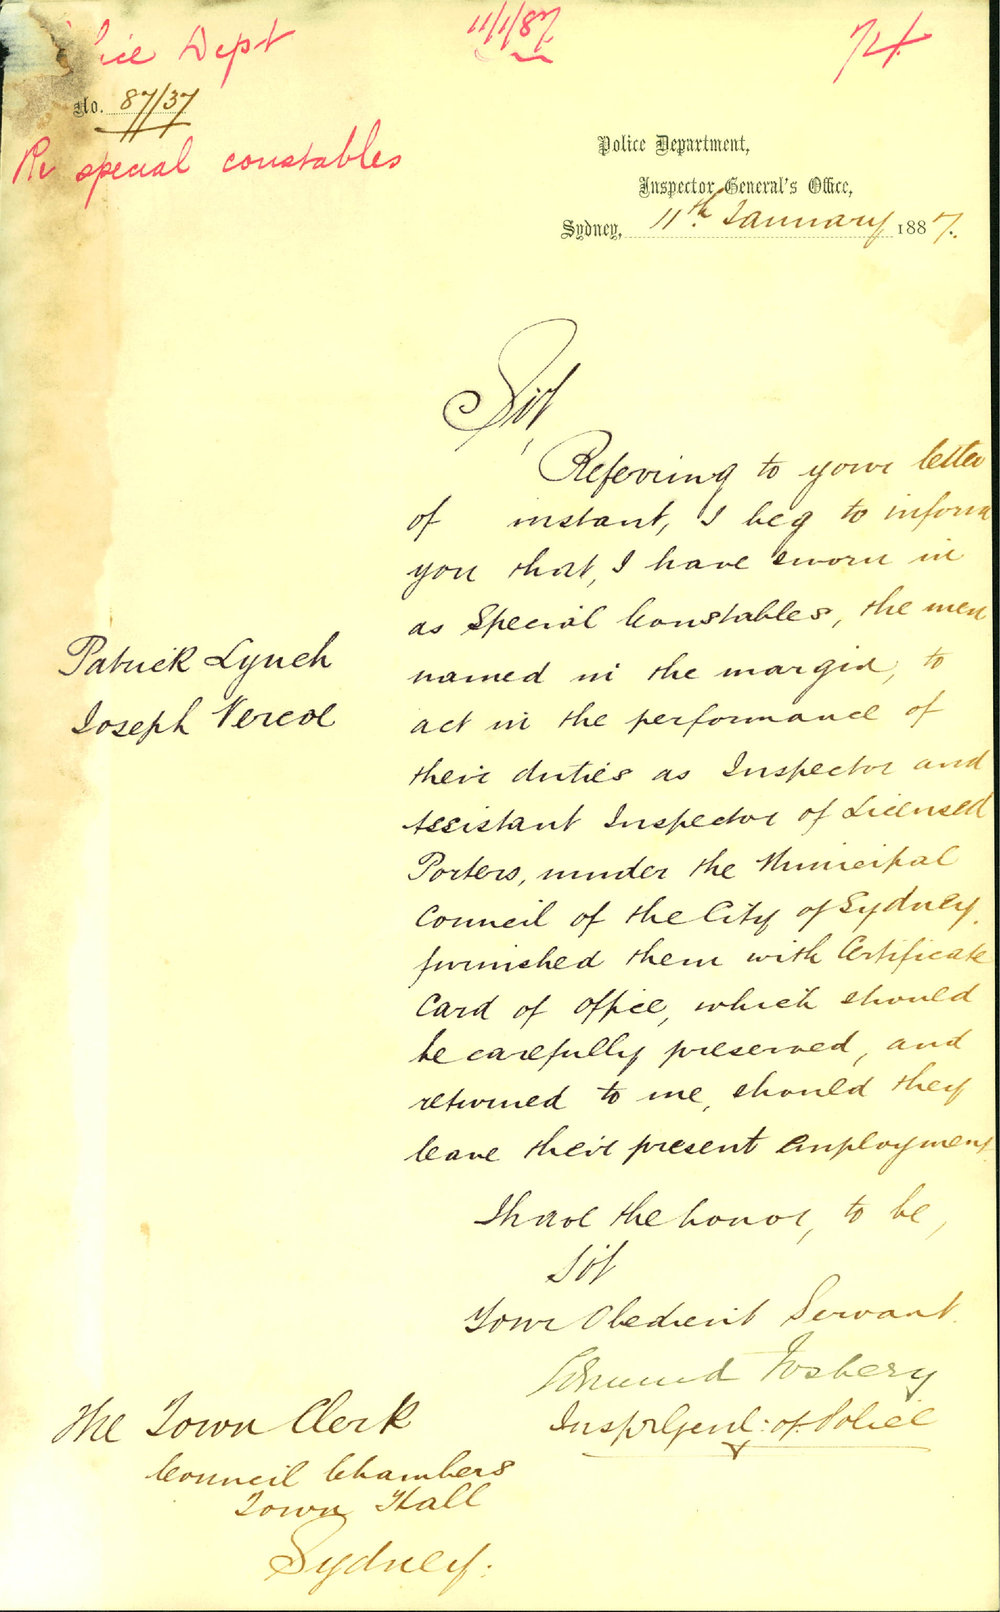 lice Dept
11/1/87
74
No. 87/37
Re special constables
Police Department,
Inspector General's Office,
Sydney, 11th January 1887.
Sir,
Referring to your letter
of instant, I beg to inform
you that, I have sworn in
as Special Constables, the men
named in the margin, to
Patrick Lynch
Joseph Vercoe
act in the performance of
their duties as Inspector and
Assistant Inspector of Licensed
Porters, under the Municipal
Council of the City of Sydney.
furnished them with Certificate
Card of office, which should
be carefully preserved, and
returned to me, should they
leave their present employment
I have the honor, to be,
Sir
Your Obedient Servant.
Edmund Fosbery
Insp. Genl: of Police
The Town Clerk
Council Chambers
Town Hall
Sydney: